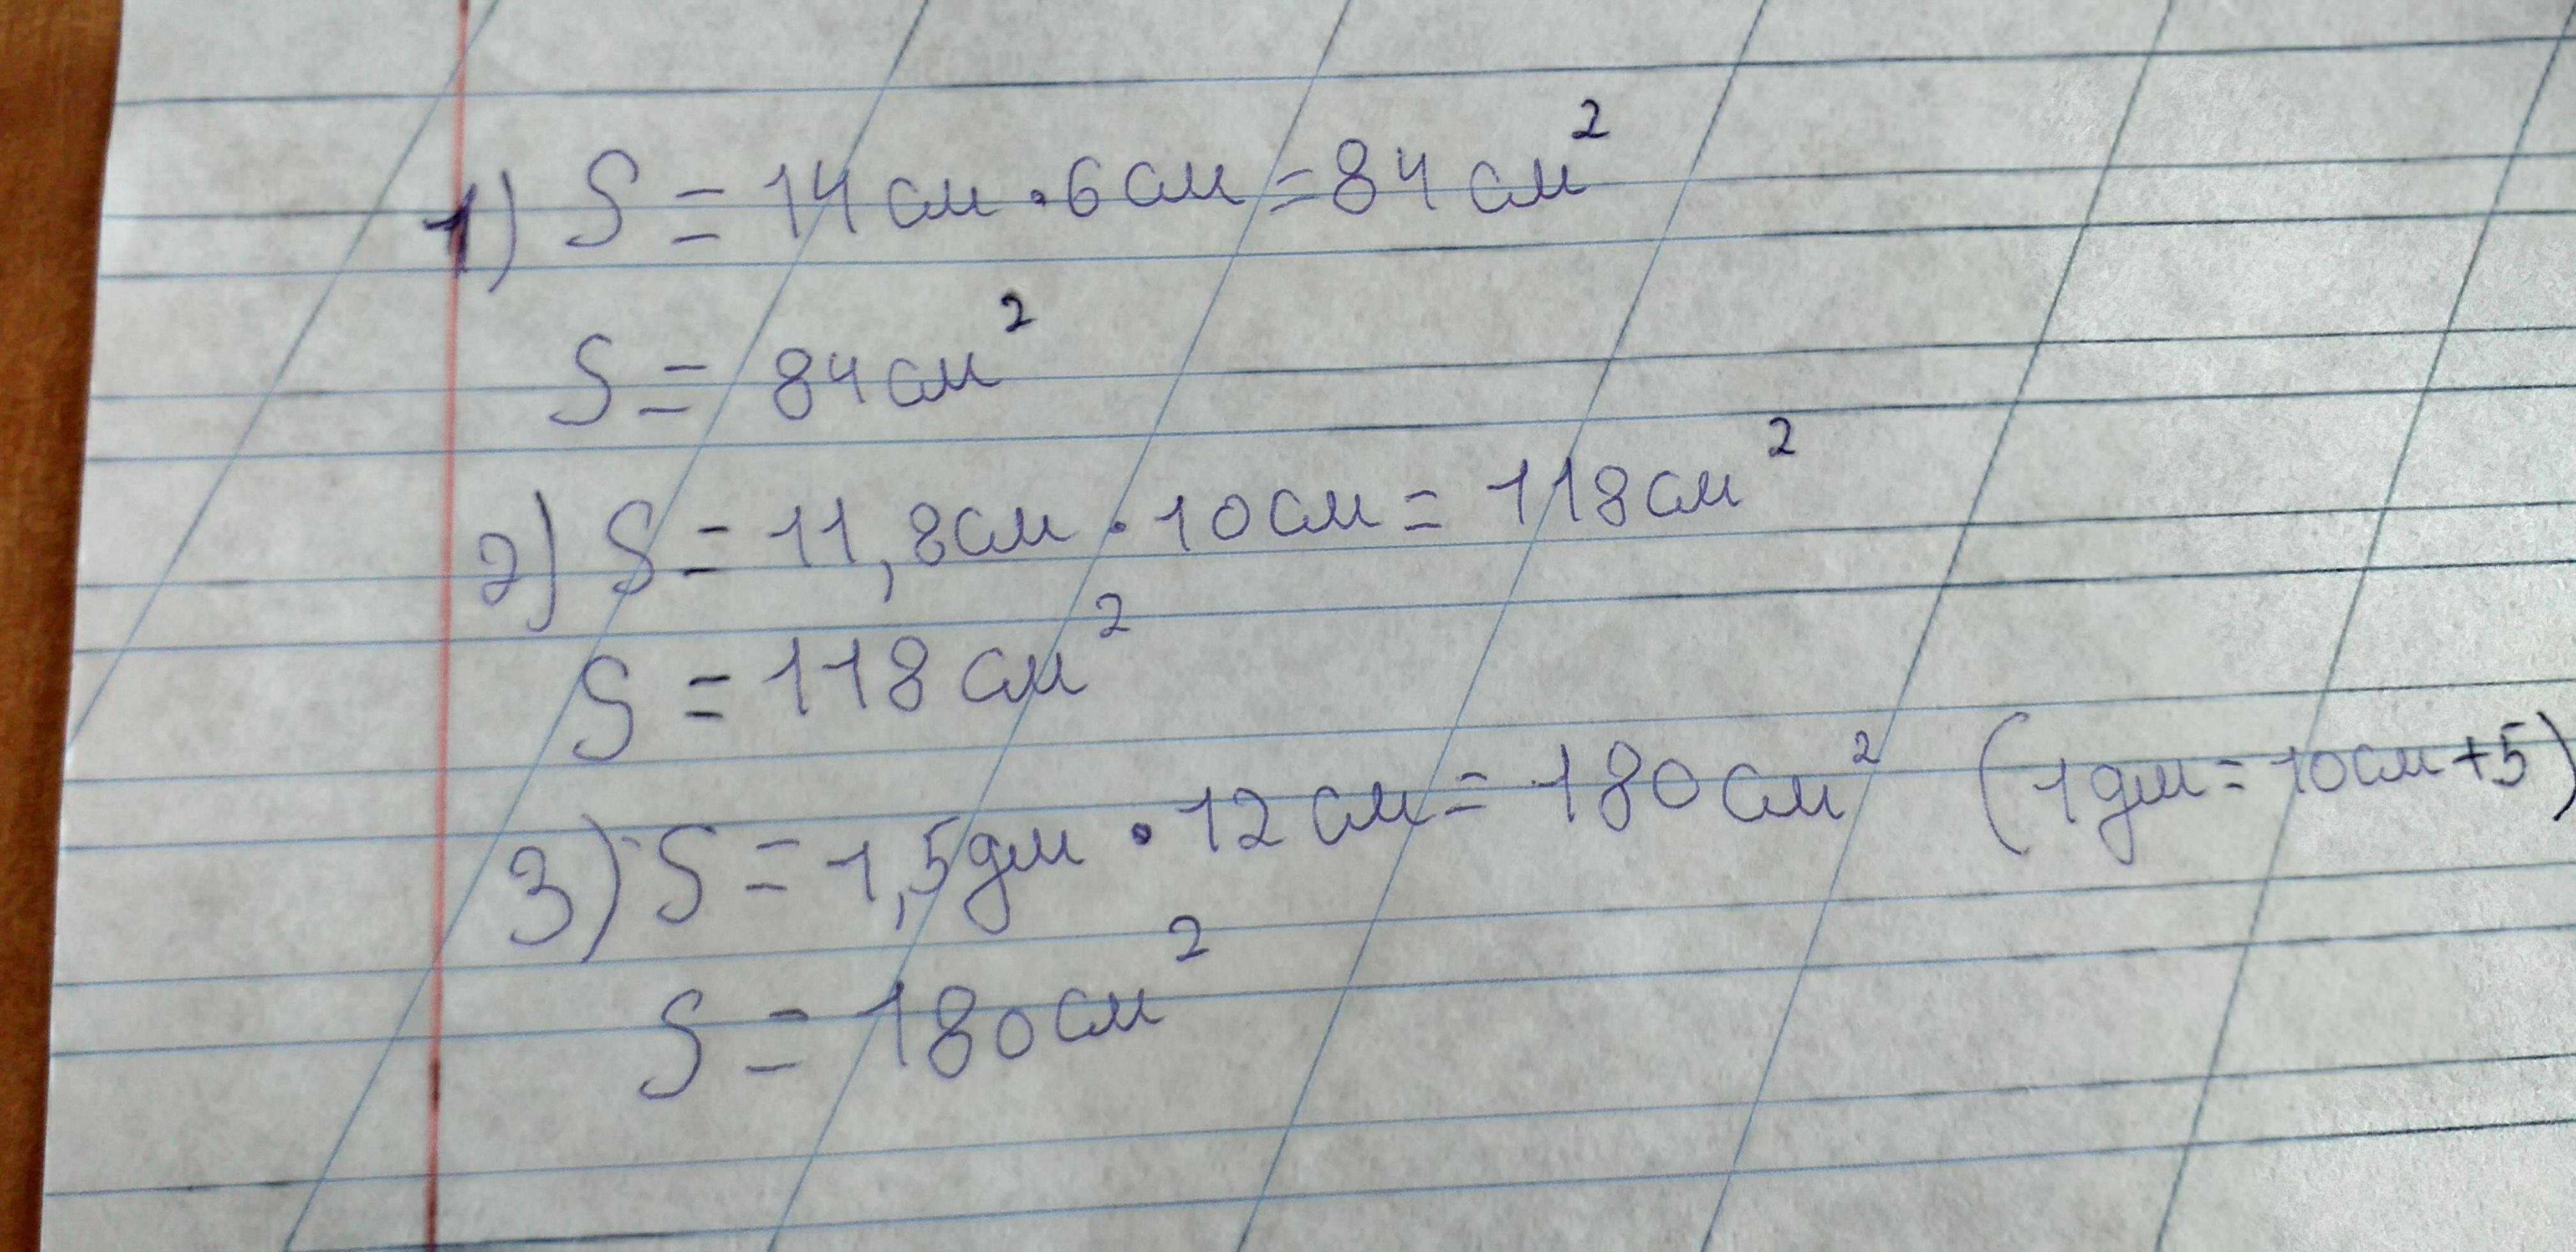 1) S = 14 см · 6 см = 84 см²
S = 84 см²
2) S = 11,8 см · 10 см = 118 см²
S = 118 см²
3) S = 1,5 дм · 12 см = 180 см² (1 дм = 10 см + 5)
S = 180 см²